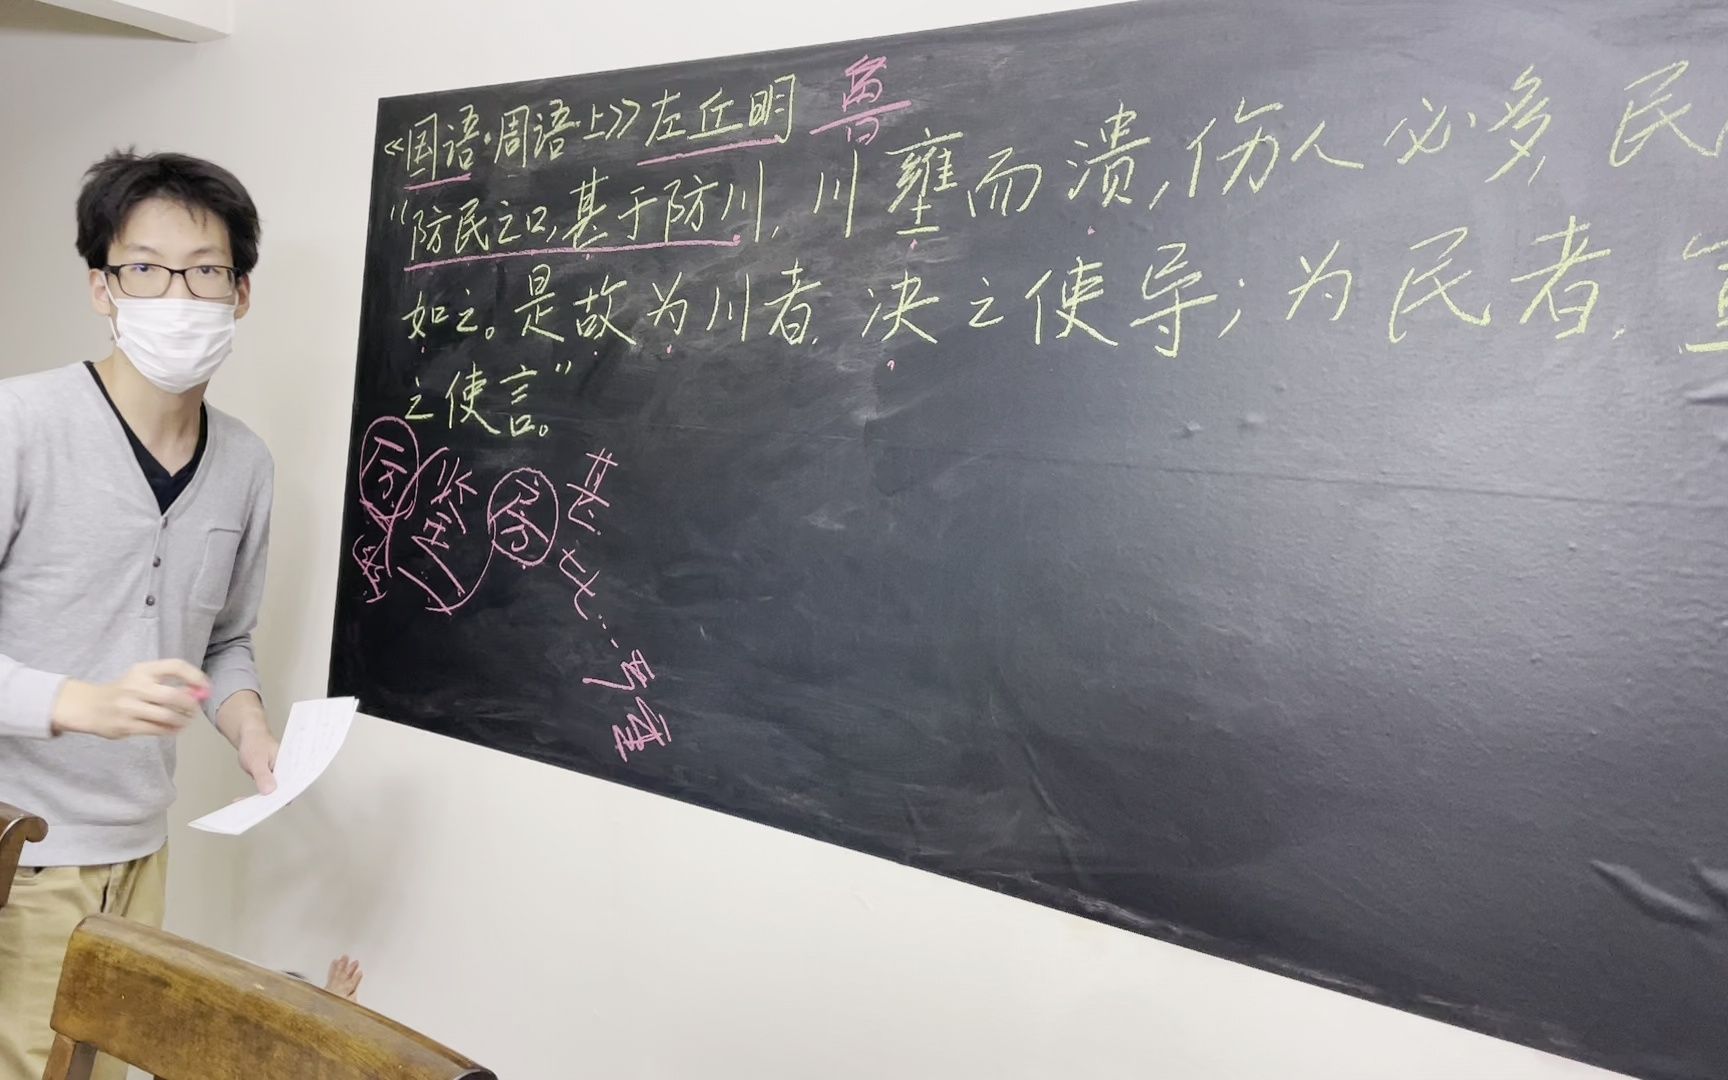 《国语·周语上》左丘明 鲁
"防民之口,甚于防川,川壅而溃,伤人必多,民
如之。是故为川者,决之使导;为民者,宣
之使言。"
甚